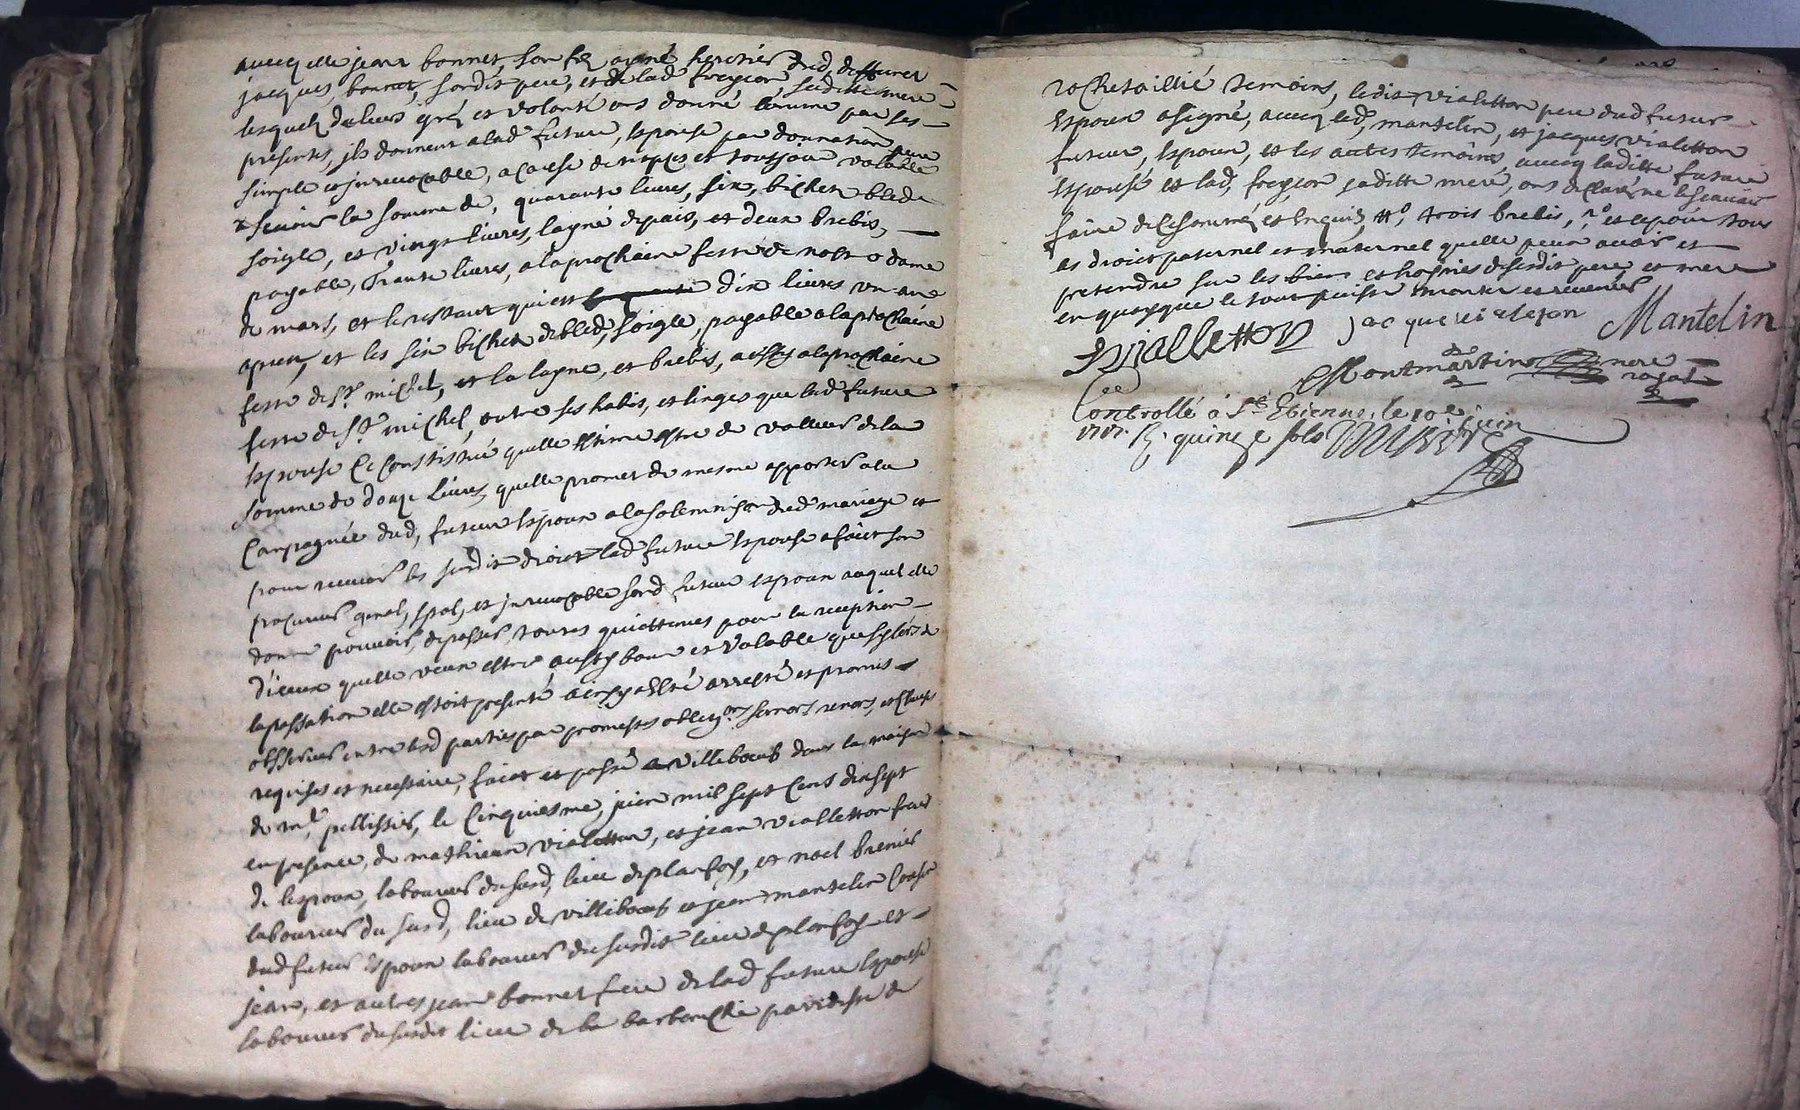 avecq elle jean bonnet, son fils ayné heritier dud, deffunct
jacques, bonnet, sondit pere, et de lad freycon saditte mere
lesquels de leurs grés et volonté ont donné comme par ses
presentes, ils donnent a lad future, espouse par donnation pure
simple et jrrevocable, a cause de nopces et tousjour valable
la somme de, quarante livres, six, bichet bled
soigle, et vingt livres, layne depais, et deux brebis,
payable, trante livres, a la prochaine feste de nostre dame
de mars, et le restant qui est dix livres un an
apres, et les six bichet de bled, soigle, payable a la prochaine
feste de St michel, et la layne, et brebis, aussy a la prochaine
feste de St michel, outre ses habis, et linges que lad future
espouse ce constitue quelle estime estre de valleur de la
somme de douze livres, quelle promet de mesme apporter a la
compagnie dud, futur espoux a la solemnison dud mariage et
pour recevoir les susdit droict lad future espouse a faict son
procureur genal, spal, et jrrevocable sond futur espoux auquel elle
donne pouvoir, de passer toutes quittances pour la reception
d'iceux quelle veux estre aussy bone et valable que sy lors de
la passation elle estoit presente ainsy a esté arresté et promis
observer entre lesd parties par promesses obligons sermors renors, et clauses
requises et necessaire, faict et passé a villebœuf dans la maison
de mr pellissier, le cinquiesme, juin mil sept cens dix sept
en presence, de mathieu vialetton, et jean vialletton frere
de lespoux, laboureur du susd, lieu de planfoy, et noel brenier
laboureur du susd, lieu de villebœuf et jean mantelin cousin
dud futur espoux laboureur du susdit lieu de planfoy et
jean, et autre jean bonnet frere de lad future espouse
laboureur du susdit lieu de la barbanche paroisse de
rochetaillié temoins, ledit vialetton pere dud futur
espoux a signé, avecq led, mantelin, et jacques vialetton
futur, espoux, et les autres temoins, avecq laditte future
espouse et lad, freycon saditte mere, ont declaré ne le scavoir
faire de ce sommés et enquis, trois brebis, et ce pour tous
les droict paternel et maternel quelle peux avoir et
pretendre sur les biens et hoiries de sesdit pere et mere
en quoy que le tout puisse monter et revenir
Vialletton jacque vialeton Mantelin
Montmartin nore royal
Controllé à St Etienne, le 10e juin
1717. R. quinze sols